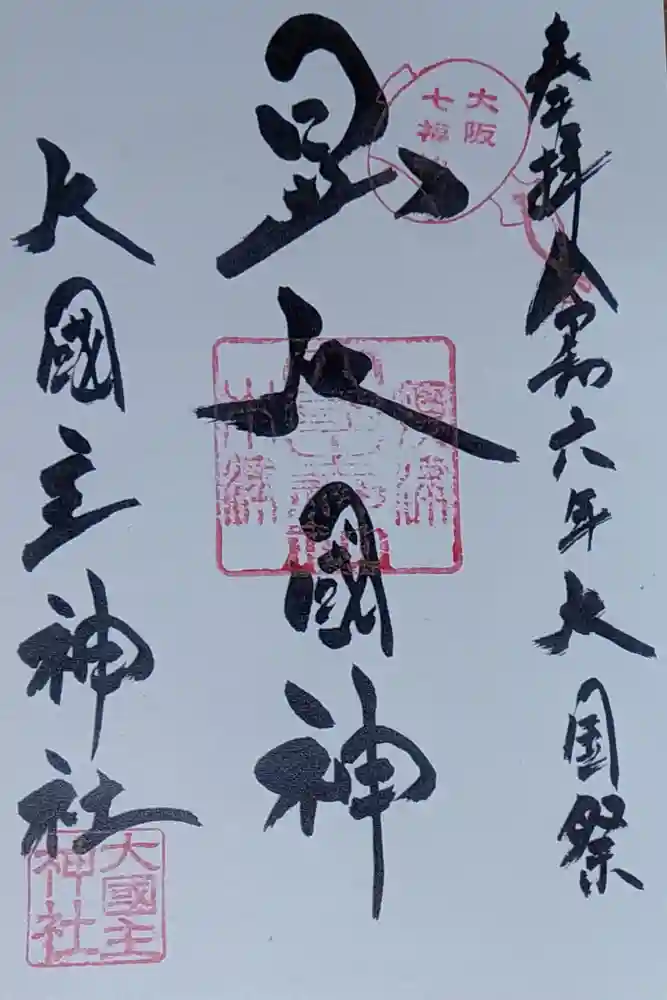 奉拝 令和六年 大国祭
大阪
七福神
大國神
大國主神社
大國主
神社